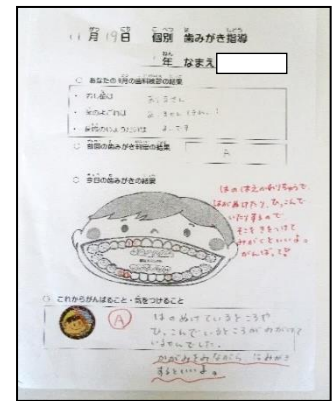 11月19日 個別 歯みがき指導
年 なまえ
○ あなたの4月の歯科検診の結果
・ むし歯は ありません
・ 歯のよごれは ありません
・ 歯肉のようじょうは
○ 前回の歯みがき指導の結果 A
○ 今日の歯みがきの結果
はのはえかわりちゅうで
はがぬけたり、ひっこんで
いたりするので
そこをきをつけて
みがくといいよ。
がんばってね
○ これからがんばること・気をつけること
A
はのぬけているところや
ひっこんでいるところがみがけて
いませんでした。
かがみをみながら はみがき
するといいよ。